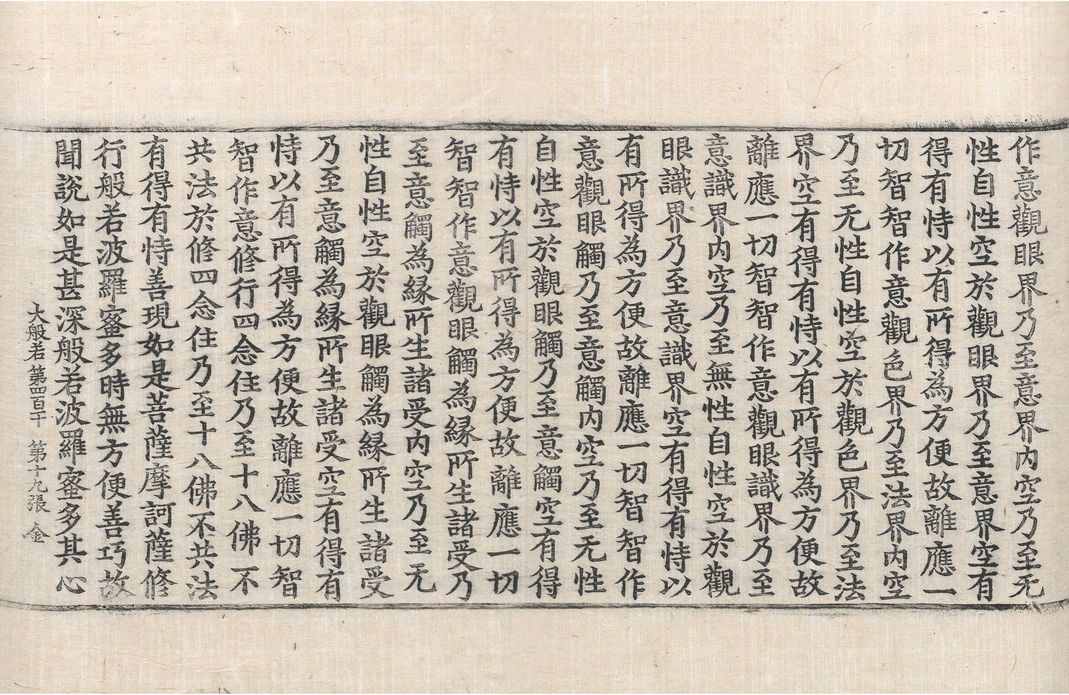 作意觀眼界乃至意界内空乃至无
性自性空於觀眼界乃至意界空有
得有恃以有所得為方便故離應一
切智智作意觀色界乃至法界内空
乃至无性自性空於觀色界乃至法
界空有得有恃以有所得為方便故
離應一切智智作意觀眼識界乃至
意識界内空乃至無性自性空於觀
眼識界乃至意識界空有得有恃以
有所得為方便故離應一切智智作
意觀眼觸乃至意觸内空乃至无性
自性空於觀眼觸乃至意觸空有得
有恃以有所得為方便故離應一切
智智作意觀眼觸為緣所生諸受乃
至意觸為緣所生諸受内空乃至无
性自性空於觀眼觸為緣所生諸受
乃至意觸為緣所生諸受空有得有
恃以有所得為方便故離應一切智
智作意修行四念住乃至十八佛不
共法於修四念住乃至十八佛不共法
有得有恃善現如是菩薩摩訶薩修
行般若波羅蜜多時無方便善巧故
聞說如是甚深般若波羅蜜多其心
大般若 第四百十 第十九張 金